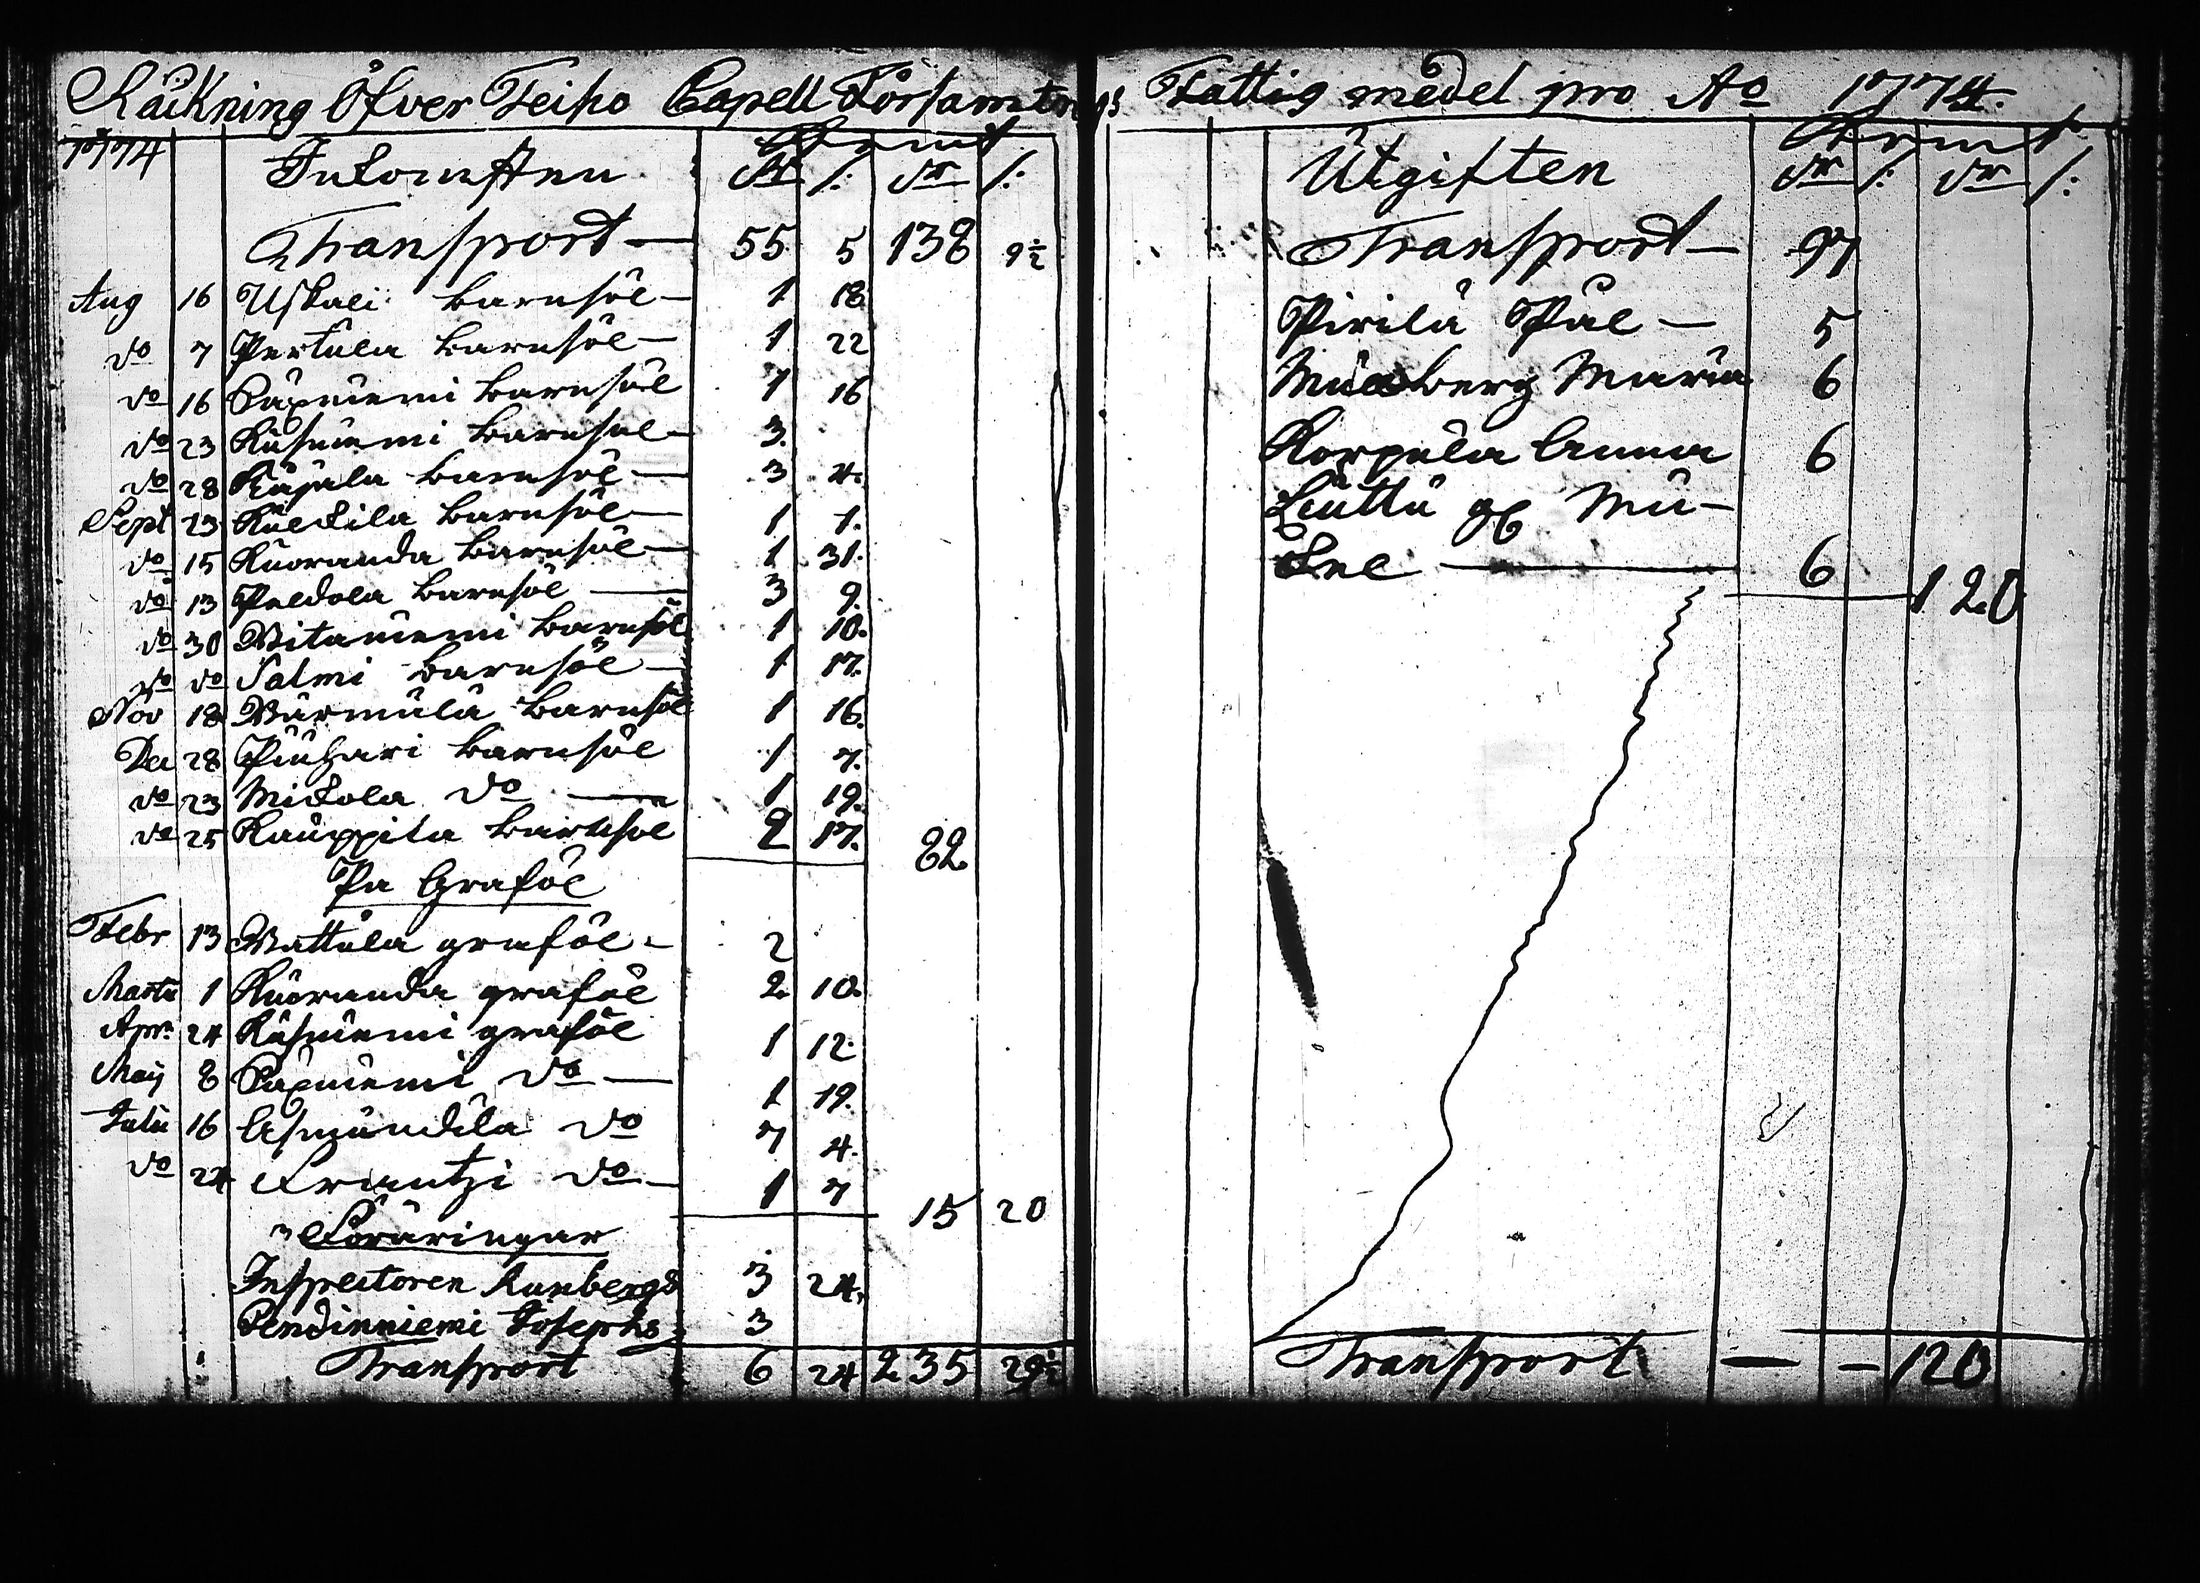 Räckning Öfver Teiho Capell Församlings Fattig medel pro Ao 1774.
1774 Inkomsten
dr /: dr /:
Transport — 55 5 138 9½
Aug 16 Uskali barnsöl — 1 18
do 7 Pertula barnsöl — 1 22
do 16 barnsöl 1 16
do 23 Kusniemi barnsöl — 3.
do 28 Kujala barnsöl — 3 4.
Sept 23 barnsöl — 1 1.
do 15 Kuoranda barnsöl — 1 31.
do 13 Peldola barnsöl — 3 9.
do 30 Vitaniemi barnsöl 1 10.
do do Salmi barnsöl — 1 17.
Nov 18 barnsöl 1 16.
Dec 28 Piuhari barnsöl 1 7.
do 23 Mickola do — 1 19.
do 25 Kauppila barnsöl 2 17. 82
Pa Graföl
Febr 13 Mattula graföl — 2
Martii 1 Kuoranda graföl 2. 10.
Apr: 24 Kusniemi graföl 1 12.
Maij 8 do — 1 19.
Julii 16 Asmundila do 7 4.
do 24 Frantzi do — 1 7 15 20
Föräringar
Inspectoren 3 24.
Pendinniemi Josephs 3
Transport 6 24 235 29½
Utgiften
dr /: dr /:
Transport — 97
Pirilä Pål — 5
Maria 6
Korpula Anna 6
Luttu Mi-
kel — 6 120
Transport — — 120